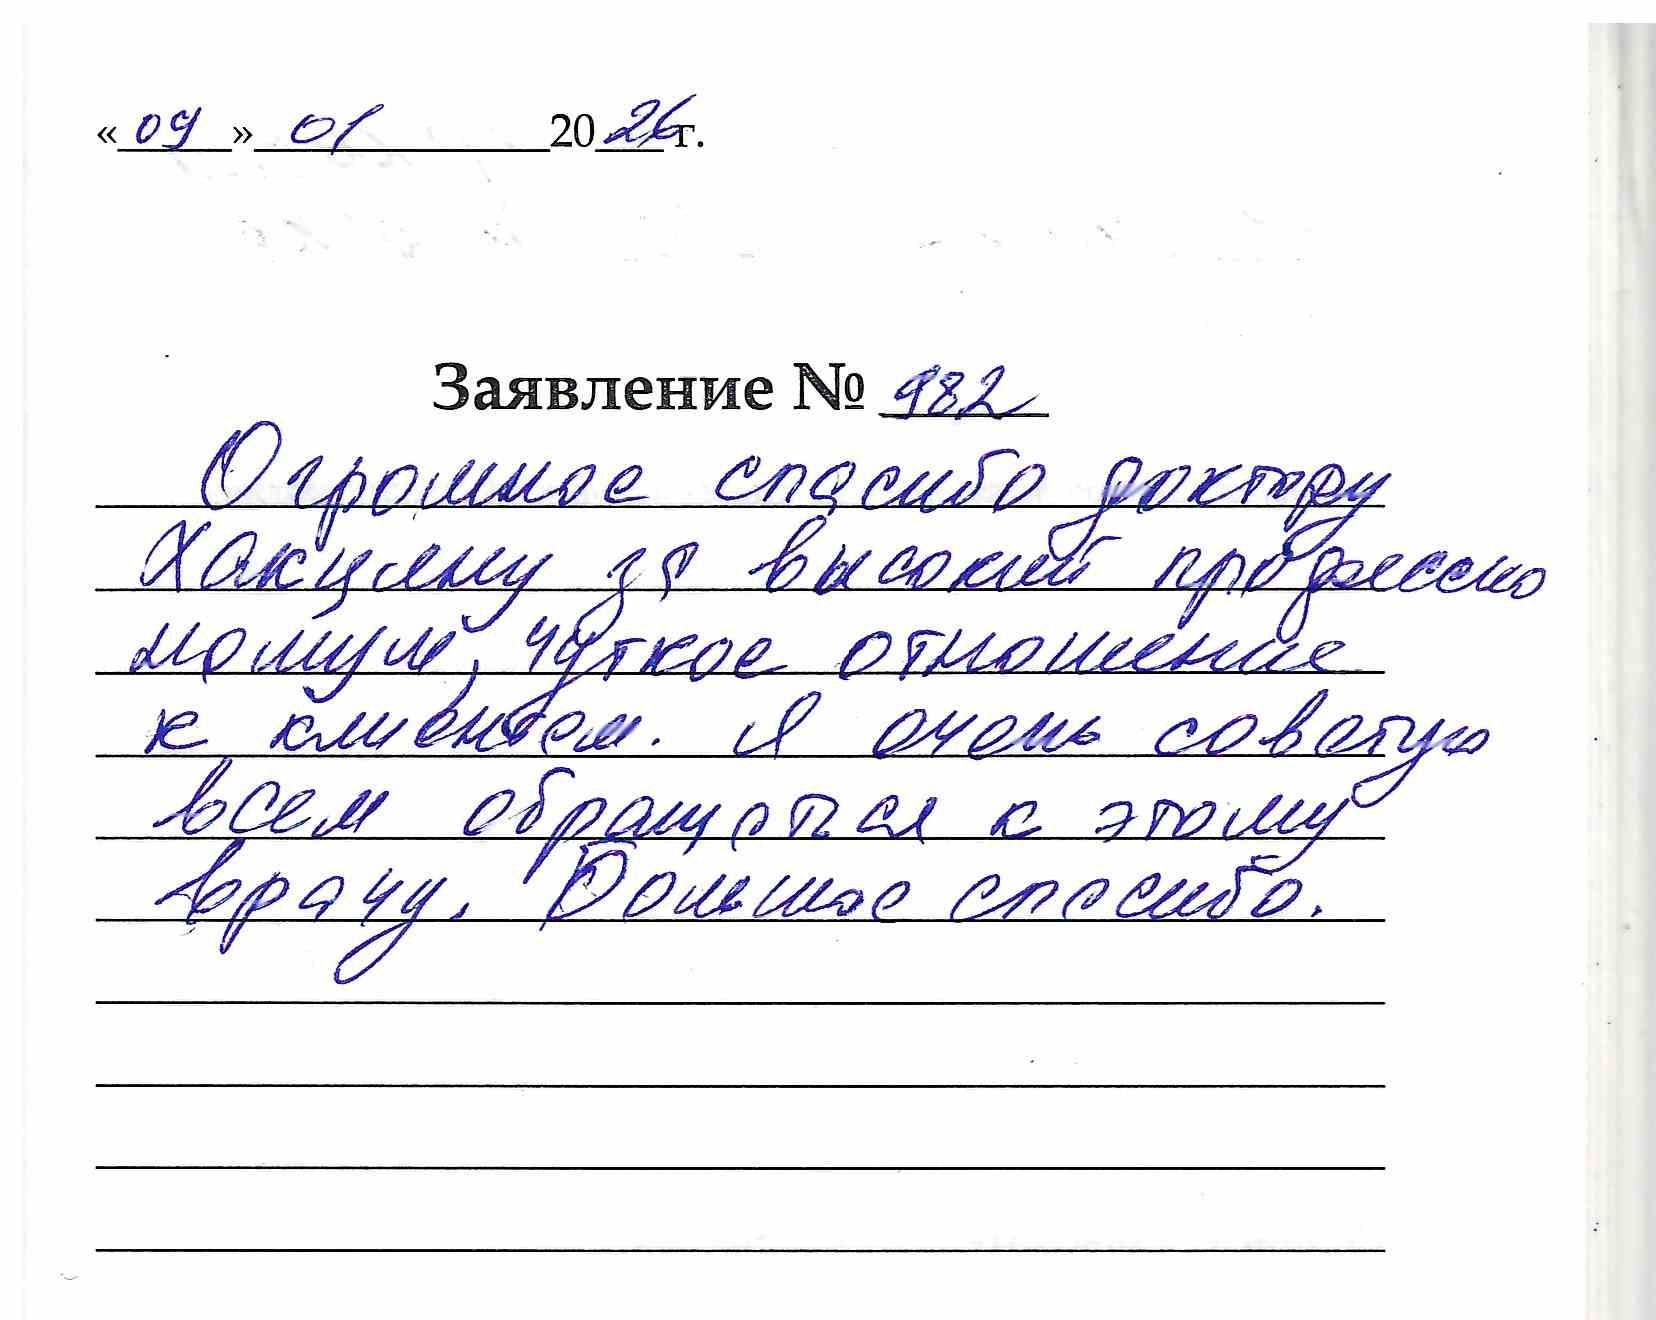 «09» 01 2026 г.
Заявление № 982
Огромное спасибо доктору
Хакцияну за высокий профессио
нолизм, чуткое отношение
к клиентам. Я очень советую
всем обращаться к этому
врачу. Большое спасибо.